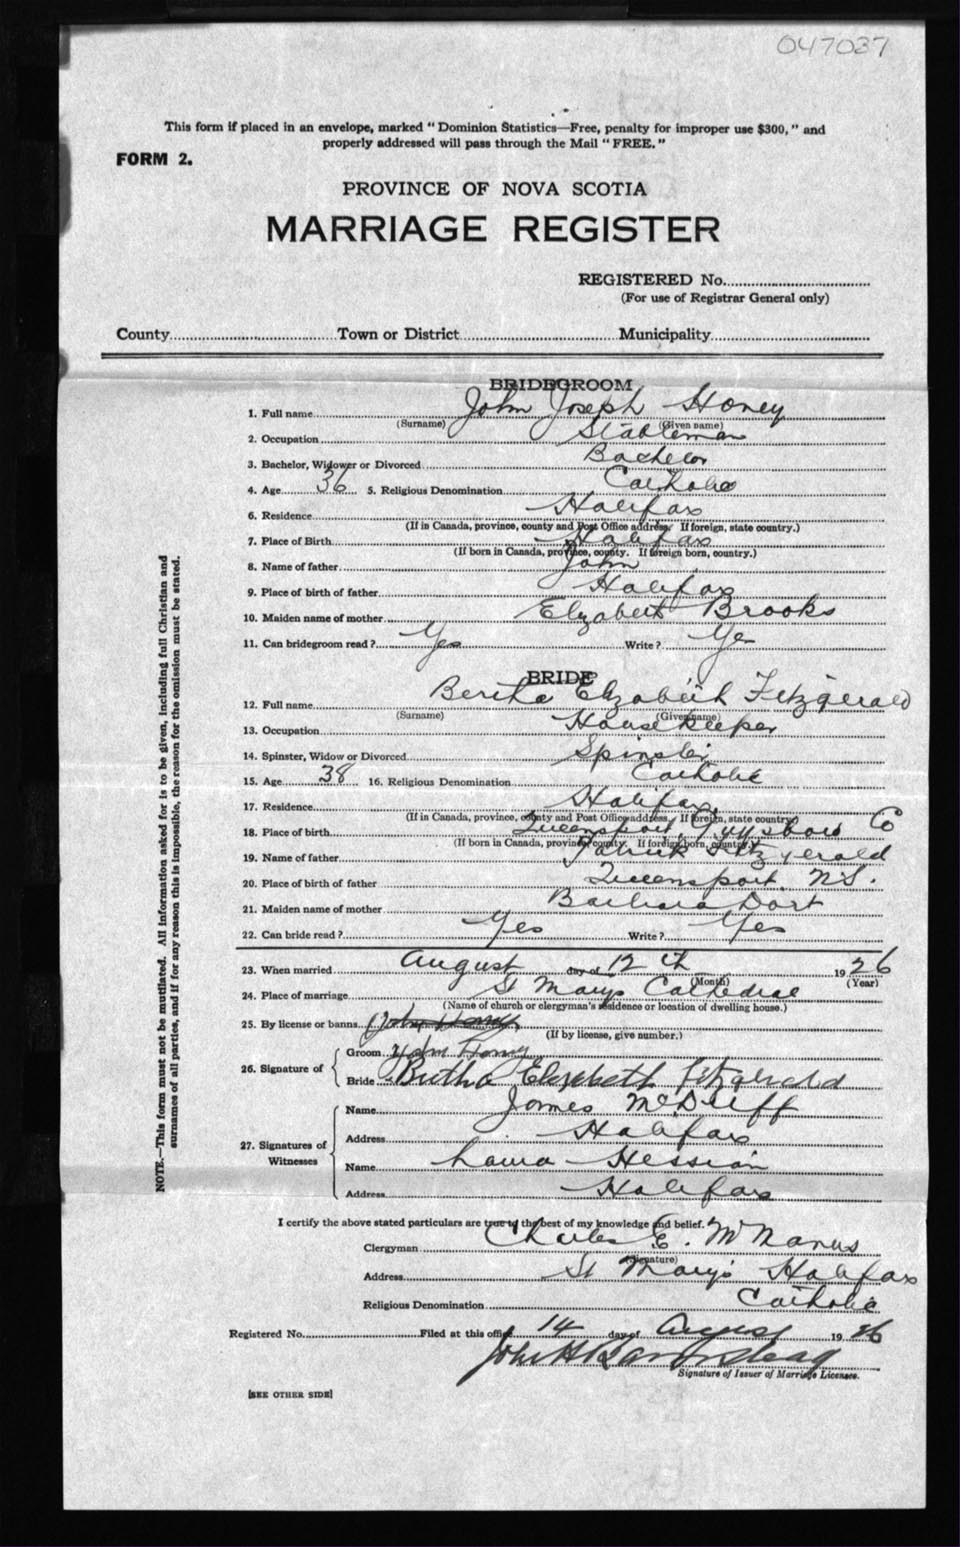 047037
This form if placed in an envelope, marked "Dominion Statistics—Free, penalty for improper use $300," and
properly addressed will pass through the Mail "FREE."
FORM 2.
PROVINCE OF NOVA SCOTIA
MARRIAGE REGISTER
REGISTERED No.
(For use of Registrar General only)
County Town or District Municipality
BRIDEGROOM
1. Full name John Joseph Honey
(Surname) (Given name)
2. Occupation Stableman
3. Bachelor, Widower or Divorced Bachelor
4. Age 36 5. Religious Denomination Catholic
6. Residence Halifax
(If in Canada, province, county and Post Office address. If foreign, state country.)
7. Place of Birth Halifax
(If born in Canada, province, county. If foreign born, country.)
8. Name of father John
9. Place of birth of father Halifax
10. Maiden name of mother Elizabeth Brooks
11. Can bridegroom read? Yes Write? Yes
BRIDE
12. Full name Bertha Elizabeth Fitzgerald
(Surname) (Given name)
13. Occupation Housekeeper
14. Spinster, Widow or Divorced Spinster
15. Age 38 16. Religious Denomination Catholic
17. Residence Halifax
(If in Canada, province, county and Post Office address. If foreign, state country)
18. Place of birth Queensport, Guysboro Co
(If born in Canada, province, county. If foreign born, country.)
19. Name of father Patrick Fitzgerald
20. Place of birth of father Queensport, N.S.
21. Maiden name of mother Barbara Dort
22. Can bride read? Yes Write? Yes
23. When married August day of 12th 1926
(Month) (Year)
24. Place of marriage St Marys Cathedral
(Name of church or clergyman's residence or location of dwelling house.)
25. By license or banns John Honey
(If by license, give number.)
26. Signature of
Groom John Honey
Bride Bertha Elizabeth Fitzgerald
27. Signatures of Witnesses
Name James McDuff
Address Halifax
Name Laura Hession
Address Halifax
I certify the above stated particulars are true to the best of my knowledge and belief.
Clergyman Charles E. McManus
(Signature)
Address St Mary's Halifax
Religious Denomination Catholic
Registered No. Filed at this office 14 day of August 1926
John H Barnstead
Signature of Issuer of Marriage Licenses.
[SEE OTHER SIDE]
NOTE.—This form must not be mutilated. All information asked for is to be given, including full Christian and
surnames of all parties, and if for any reason this is impossible, the reason for the omission must be stated.